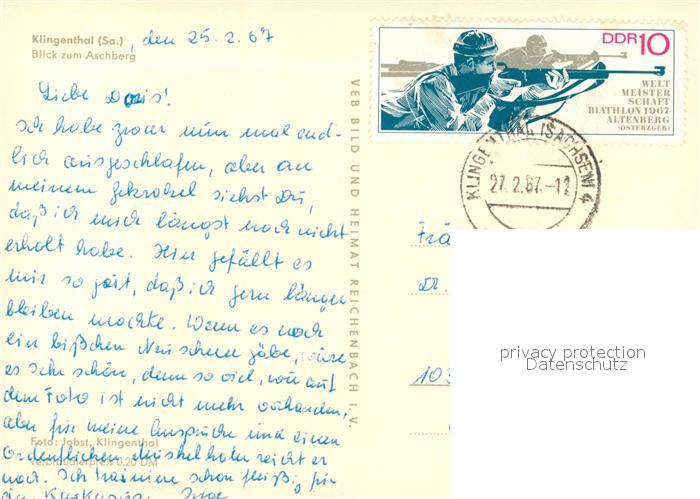 Klingenthal (Sa.), den 25. 2. 67
Blick zum Aschberg
Liebe Doris!
Ich habe zwar nun mal end-
lich ausgeschlafen, aber an
meinem Gekrakel siehst Du,
daß ich mich längst noch nicht
erholt habe. Hier gefällt es
mir so gut, daß ich gern länger
bleiben möchte. Wenn es noch
ein bißchen Neuschnee gäbe, wäre
es sehr schön, denn so viel, wie auf
dem Foto ist nicht mehr vorhanden,
aber für meine Ansprüche und einen
ordentlichen Muskelkater reicht er
noch. Ich trainiere schon fleißig für
Foto: Jobst, Klingenthal
Verbraucherpreis 0,20 DM
VEB BILD UND HEIMAT REICHENBACH I. V.
DDR 10
WELT
MEISTER
SCHAFT
BIATHLON 1967
ALTENBERG
(OSTERZGEB)
KLINGENTHAL (SACHSEN) 4
27.2.67.-12
Frä
Dr.
103
privacy protection
Datenschutz